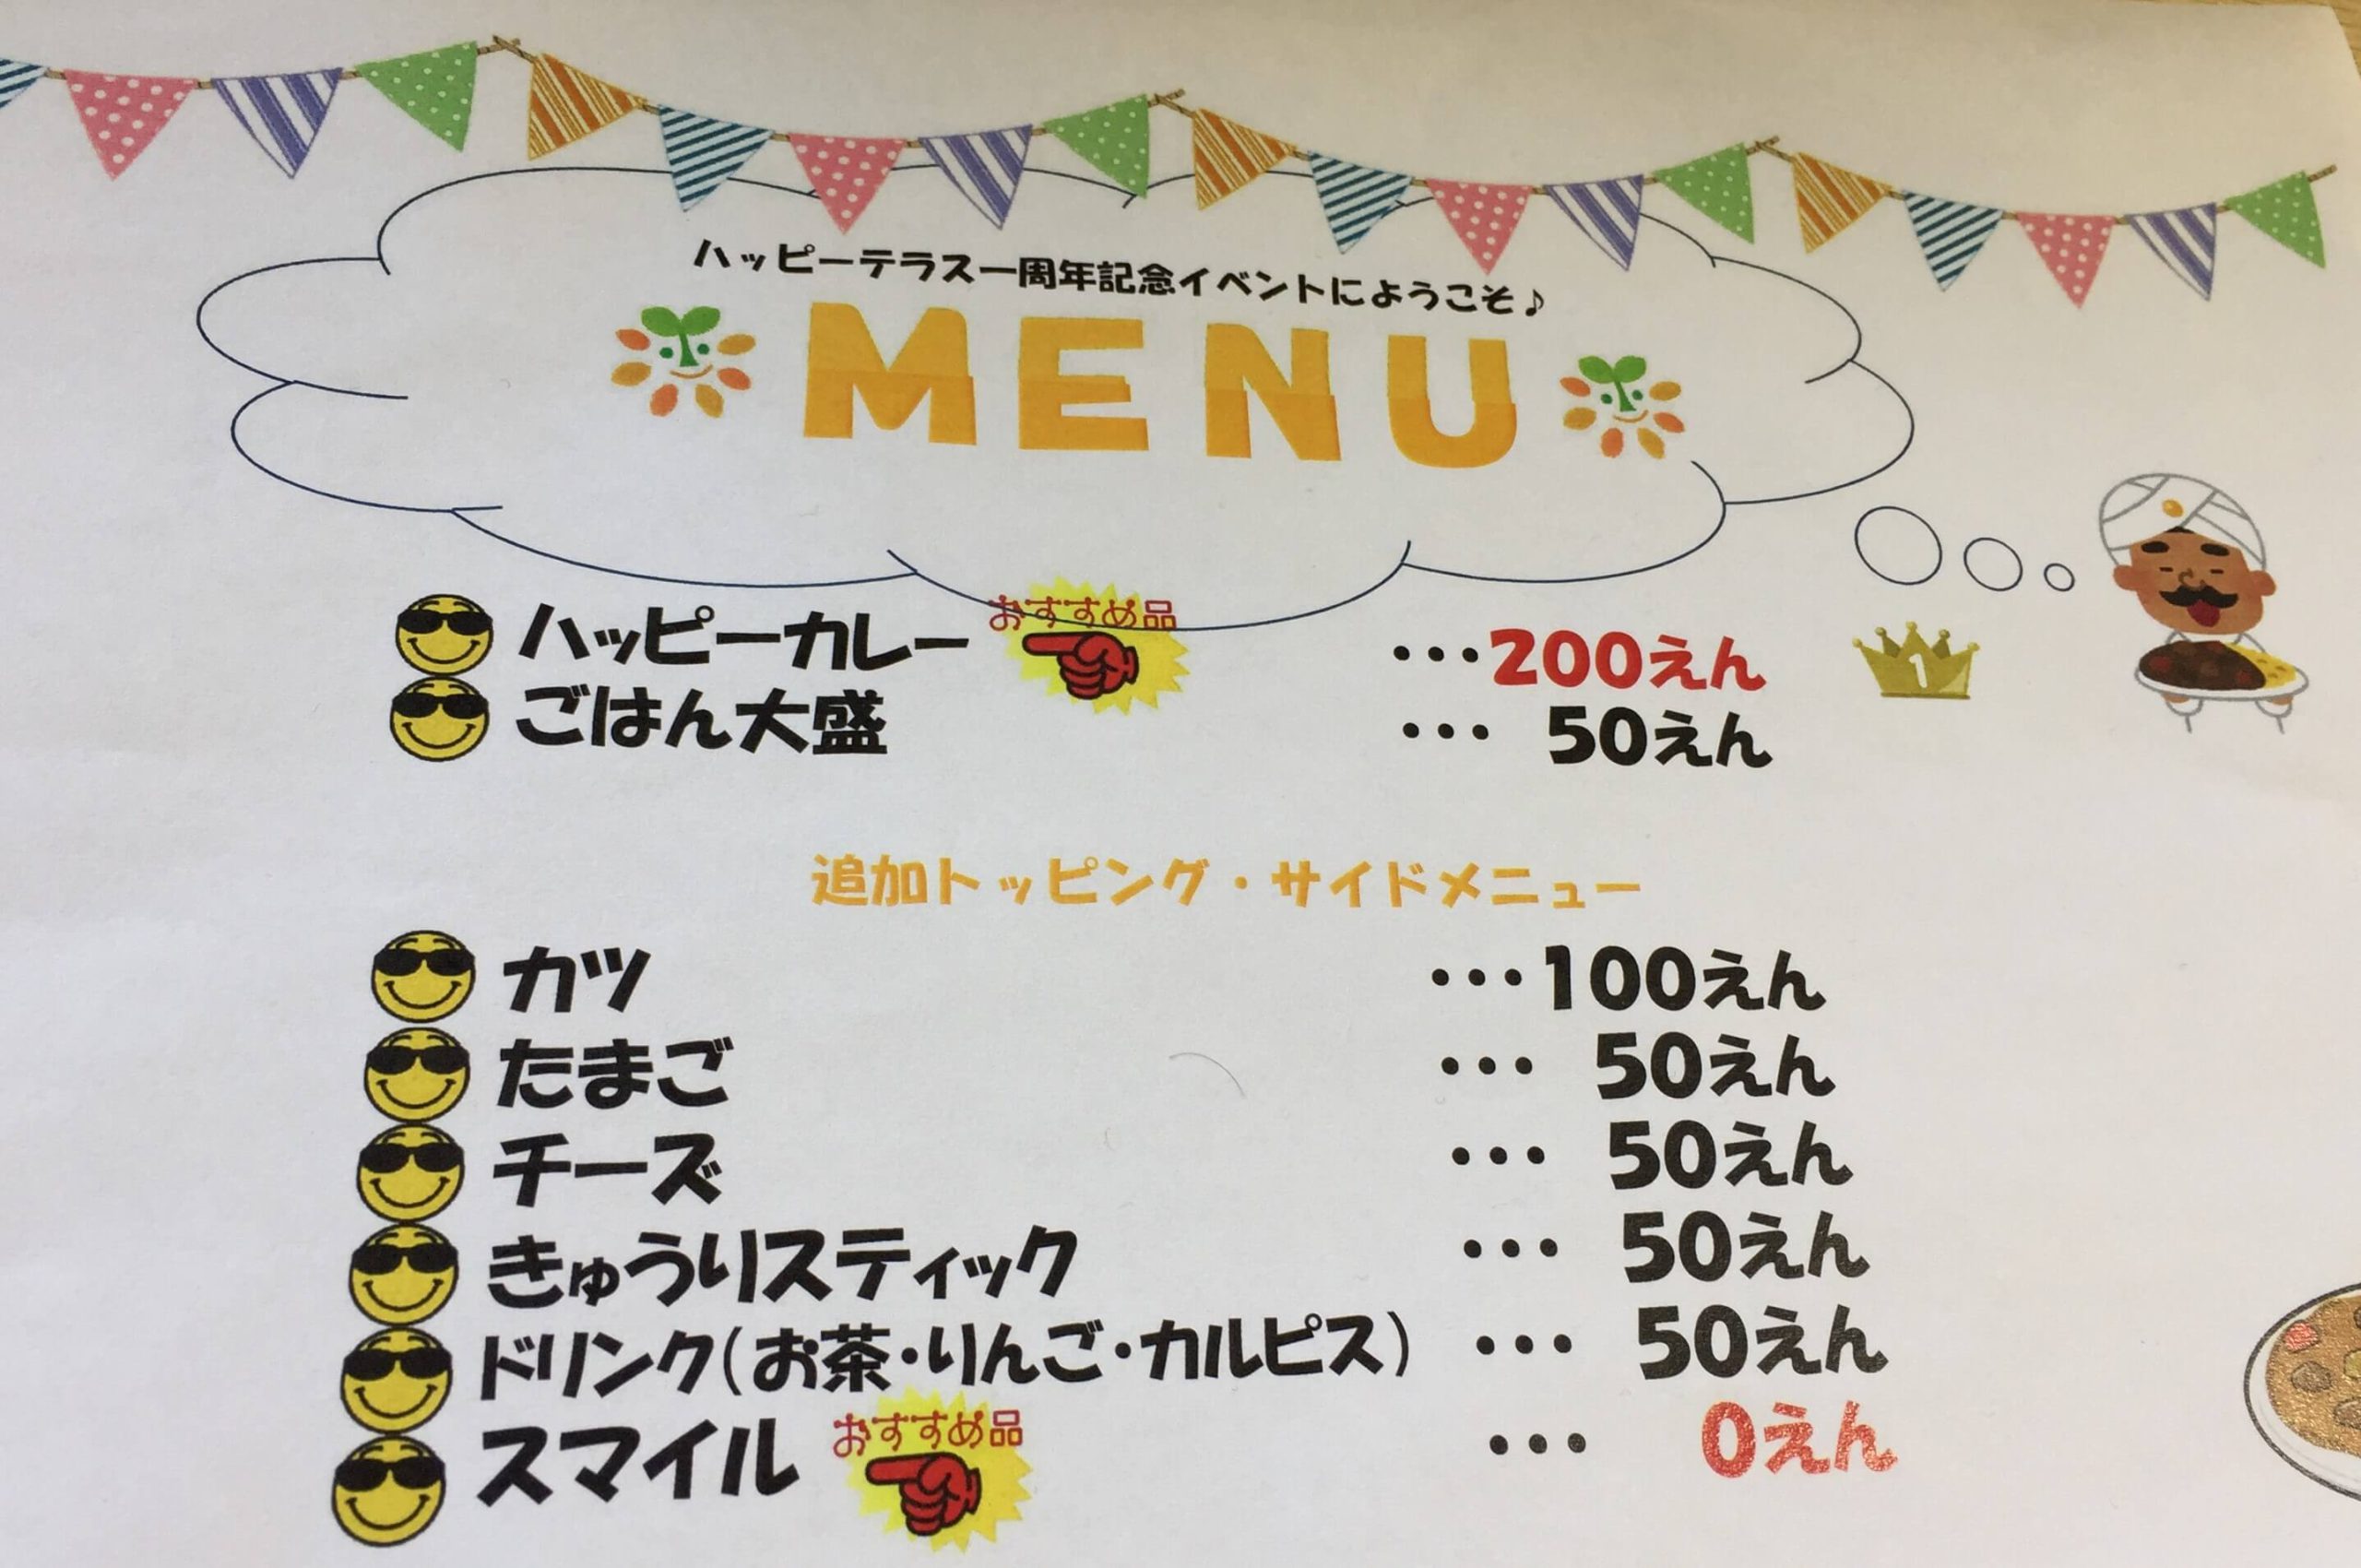 ハッピーテラス一周年記念イベントにようこそ♪
MENU
ハッピーカレー おすすめ品 ・・・200えん 1
ごはん大盛 ・・・ 50えん
追加トッピング・サイドメニュー
カツ ・・・100えん
たまご ・・・ 50えん
チーズ ・・・ 50えん
きゅうりスティック ・・・ 50えん
ドリンク(お茶・りんご・カルピス) ・・・ 50えん
スマイル おすすめ品 ・・・ 0えん